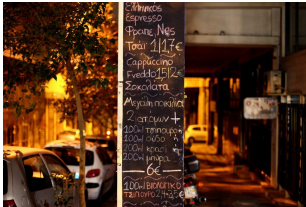 Ελληνικός
Espresso
Φραπέ Nes
Τσάι 1|1,7€
Cappuccino
Freddo 1,5|2€
Σοκολάτα
Μεγάλη ποικιλία
2 ατόμων +
100ml τσίπουρο
100ml ούζο
100ml κρασί
100ml μπύρα
6€
100ml ΒΙΟΛΟΓΙΚΟ